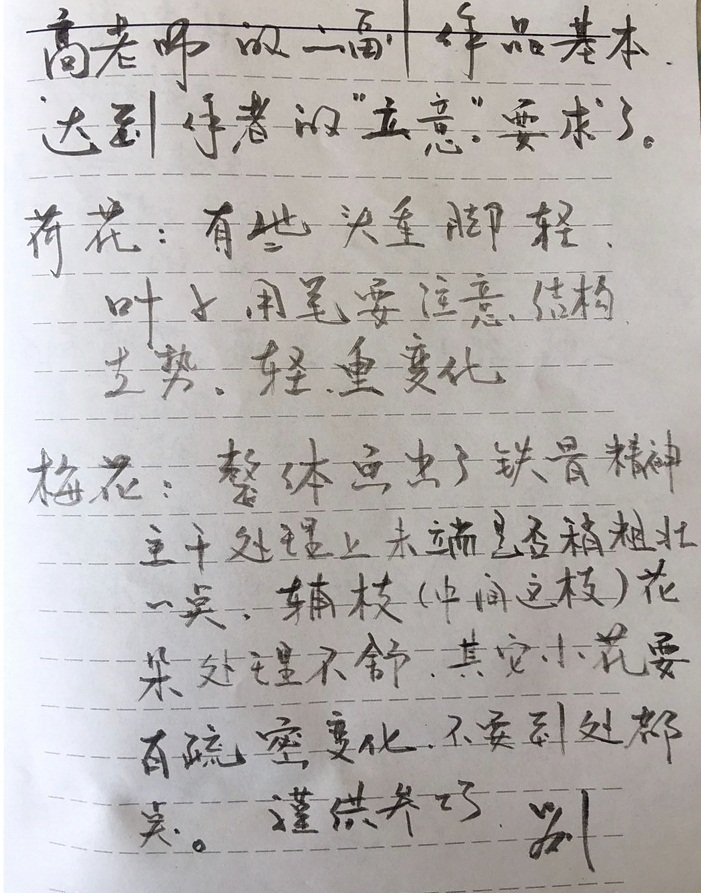 高老师的二副作品基本
达到作者的“立意”要求了。
荷花：有些头重脚轻、
叶子用笔要注意、结构
走势。轻、重变化
梅花：整体画出了铁骨精神
主干处理上末端是否稍粗壮
一点、辅枝（中间这枝）花
朵处理不舒、其它小花要
有疏密变化、不要到处都
点。谨供参巧